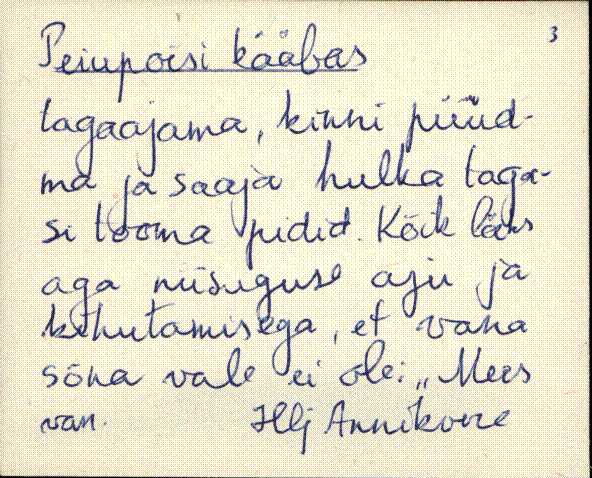 3
Peiupoisi kääbas
tagaajama, kinni püüd-
ma ja saaja hulka taga-
si tooma pidid. Kõik läks
aga niisuguse aju ja
kihutamisega, et vana
sõna vale ei ole: „Mees
van. Hlj Annikvere